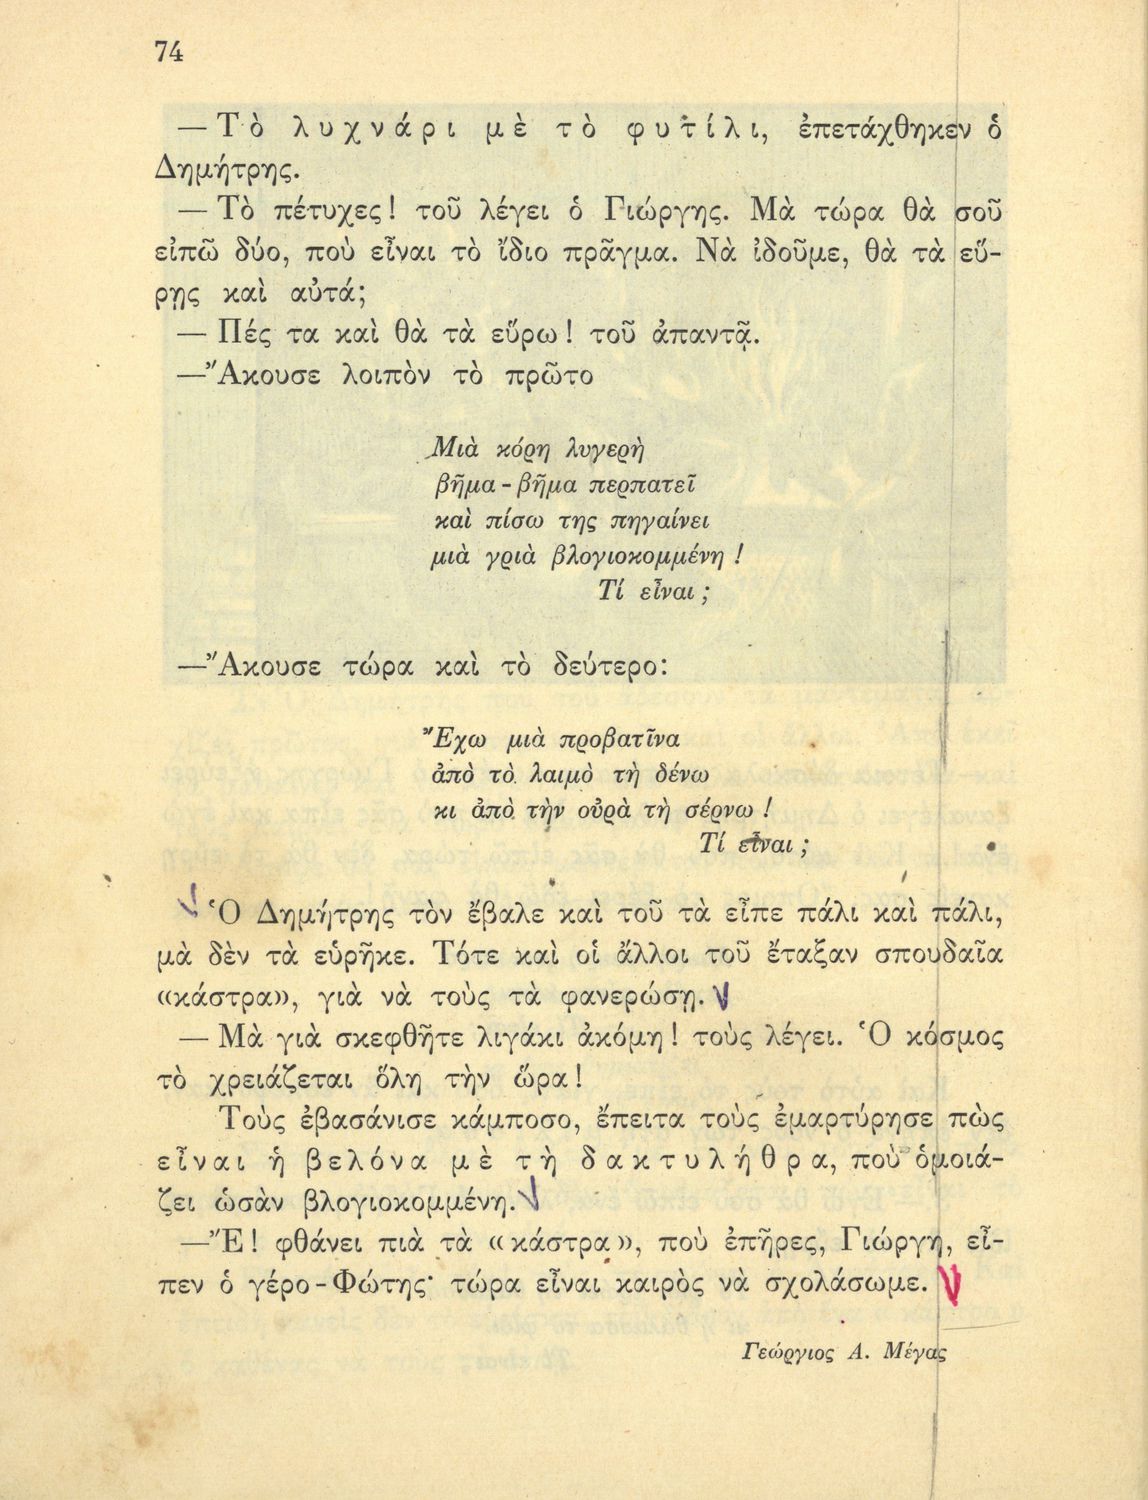 74
— Τὸ λυχνάρι μὲ τὸ φυτίλι, ἐπετάχθηκεν ὁ
Δημήτρης.
— Τὸ πέτυχες! τοῦ λέγει ὁ Γιώργης. Μὰ τώρα θὰ σοῦ
εἰπῶ δύο, ποὺ εἶναι τὸ ἴδιο πρᾶγμα. Νὰ ἰδοῦμε, θὰ τὰ εὕ-
ρῃς καὶ αὐτά;
— Πές τα καὶ θὰ τὰ εὕρω! τοῦ ἀπαντᾷ.
—Ἄκουσε λοιπὸν τὸ πρῶτο
Μιὰ κόρη λυγερὴ
βῆμα - βῆμα περπατεῖ
καὶ πίσω της πηγαίνει
μιὰ γριὰ βλογιοκομμένη !
Τί εἶναι ;
—Ἄκουσε τώρα καὶ τὸ δεύτερο:
Ἔχω μιὰ προβατῖνα
ἀπὸ τὸ λαιμὸ τὴ δένω
κι ἀπὸ τὴν οὐρὰ τὴ σέρνω !
Τί εἶναι ;
Ὁ Δημήτρης τὸν ἔβαλε καὶ τοῦ τὰ εἶπε πάλι καὶ πάλι,
μὰ δὲν τὰ εὑρῆκε. Τότε καὶ οἱ ἄλλοι τοῦ ἔταξαν σπουδαῖα
«κάστρα», γιὰ νὰ τοὺς τὰ φανερώσῃ.
— Μὰ γιὰ σκεφθῆτε λιγάκι ἀκόμη! τοὺς λέγει. Ὁ κόσμος
τὸ χρειάζεται ὅλη τὴν ὥρα!
Τοὺς ἐβασάνισε κάμποσο, ἔπειτα τοὺς ἐμαρτύρησε πὼς
εἶναι ἡ βελόνα μὲ τὴ δακτυλήθρα, ποὺ ὁμοιά-
ζει ὡσὰν βλογιοκομμένη.
—Ἔ! φθάνει πιὰ τὰ «κάστρα», ποὺ ἐπῆρες, Γιώργη, εἶ-
πεν ὁ γέρο - Φώτης· τώρα εἶναι καιρὸς νὰ σχολάσωμε.
Γεώργιος Α. Μέγας